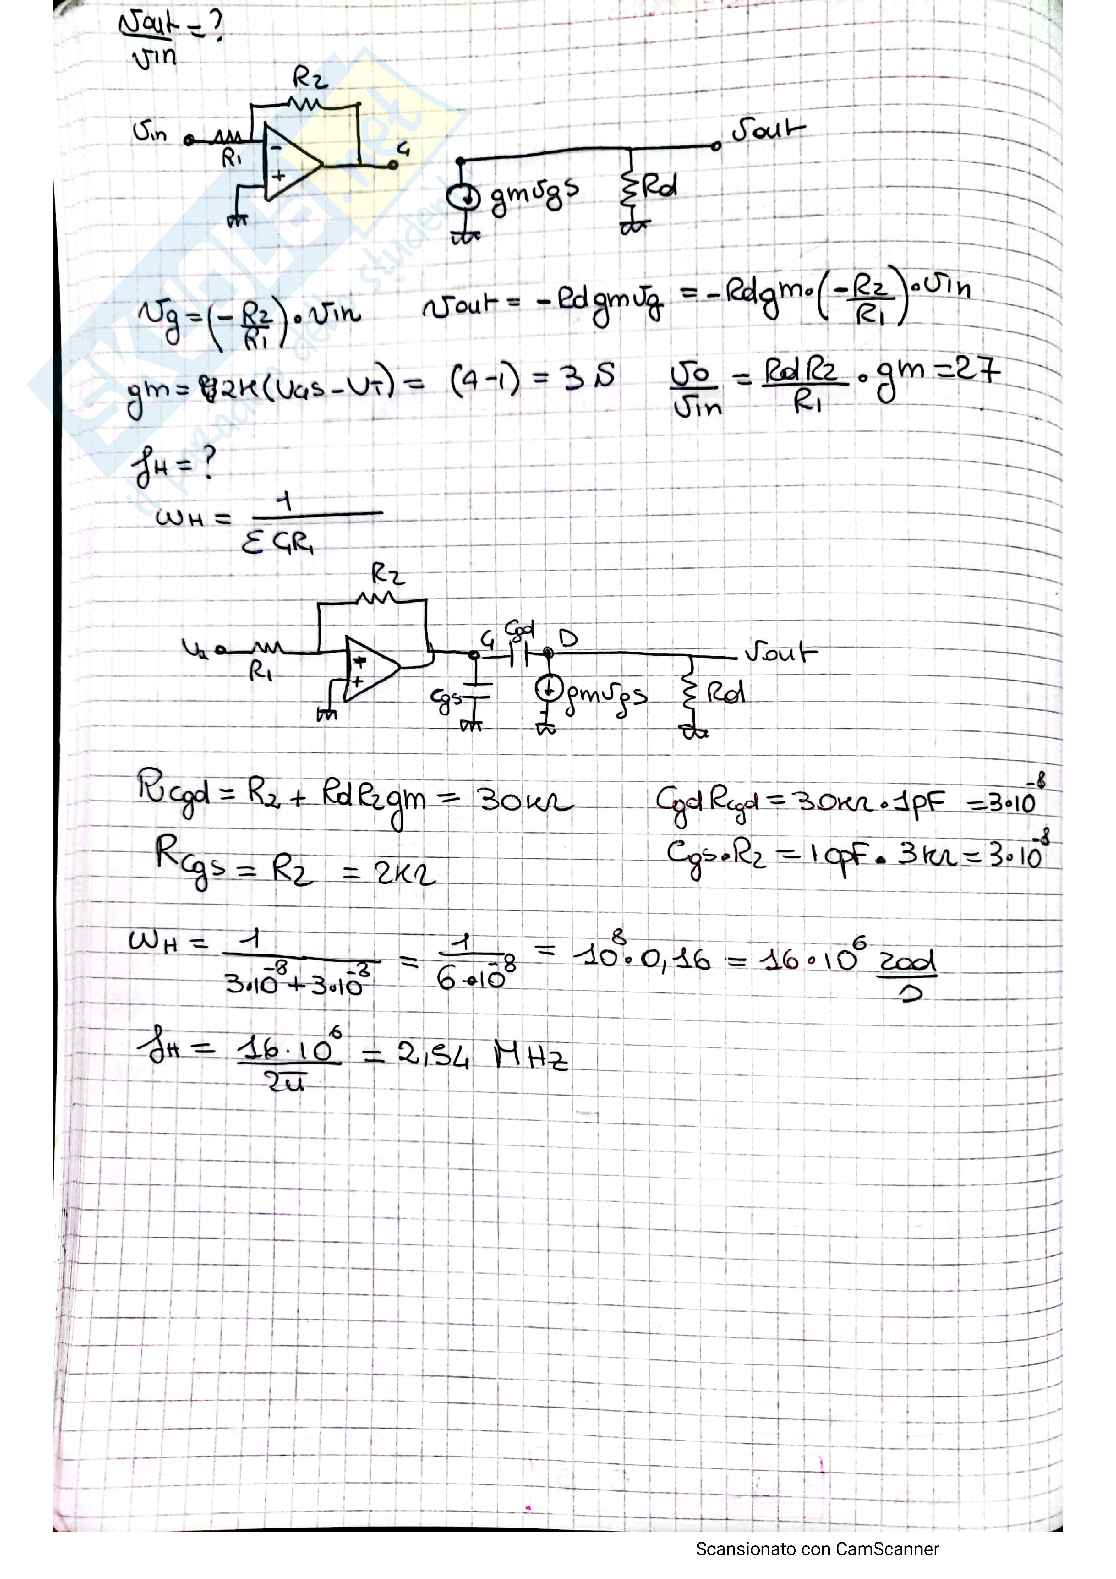 vout/vin = ?
R2
vin
R1
-
+
G
gmvgs
Rd
vout
vg = (-R2/R1)·vin   vout = -Rdgmvg = -Rdgm·(-R2/R1)·vin
gm = 2K(VGS-VT) = (4-1) = 3 S   vo/vin = RdR2/R1 · gm = 27
fH = ?
ωH = 1/ΣCiRi
R2
R1
+
G
Cgd
D
Cgs
gmvgs
Rd
vout
Rcgd = R2 + RdR2gm = 30kΩ   CgdRcgd = 30kΩ·1pF = 3·10^-8
Rcgs = R2 = 2kΩ   Cgs·R2 = 10pF·3kΩ = 3·10^-8
ωH = 1/(3·10^-8+3·10^-8) = 1/(6·10^-8) = 10^8·0,16 = 16·10^6 rad/s
fH = 16·10^6/2π = 2,54 MHz
SKUOLA.net
Scansionato con CamScanner